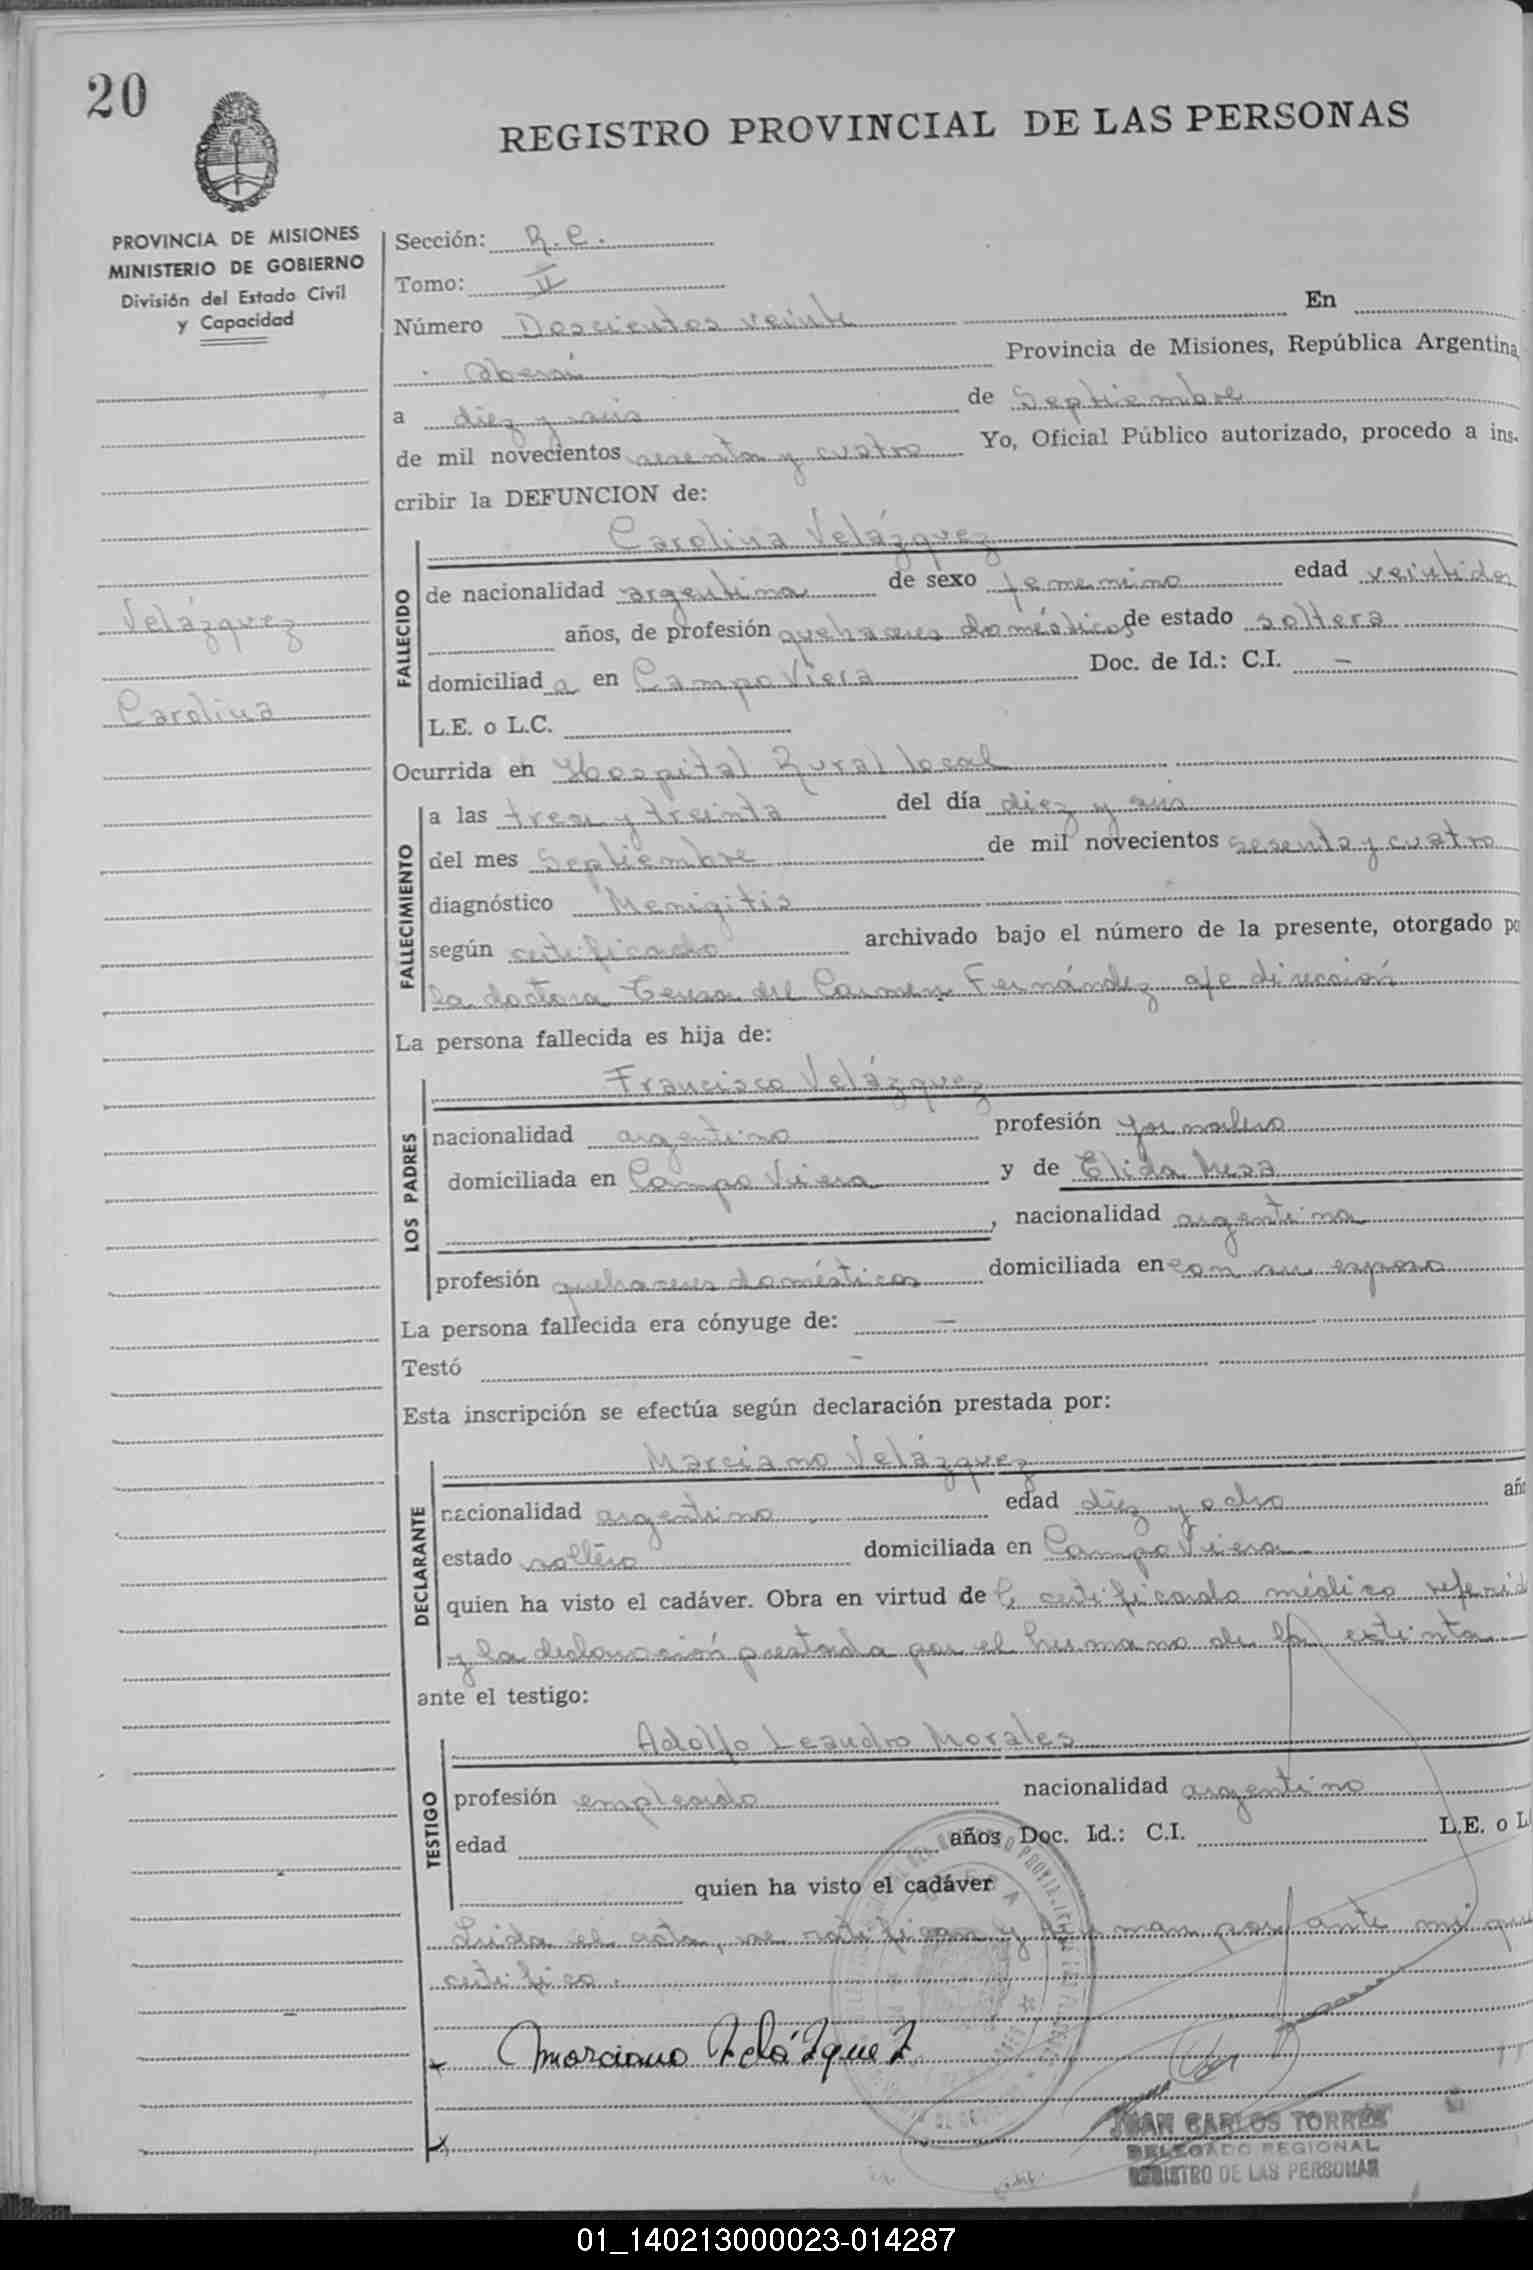 20
REGISTRO PROVINCIAL DE LAS PERSONAS
PROVINCIA DE MISIONES
MINISTERIO DE GOBIERNO
División del Estado Civil
y Capacidad
Velázquez
Carolina
Sección: R.C.
Tomo: II
Número Doscientos veinte En
Oberá Provincia de Misiones, República Argentina,
a diez y seis de Septiembre
de mil novecientos sesenta y cuatro Yo, Oficial Público autorizado, procedo a ins-
cribir la DEFUNCION de:
Carolina Velázquez
FALLECIDO
de nacionalidad argentina de sexo femenino edad veintidos
años, de profesión quehaceres domésticos de estado soltera
domiciliad a en Campo Viera Doc. de Id.: C.I. —
L.E. o L.C.
Ocurrida en Hospital Rural local
FALLECIMIENTO
a las tres y treinta del día diez y seis
del mes Septiembre de mil novecientos sesenta y cuatro
diagnóstico Menigitis
según certificado archivado bajo el número de la presente, otorgado po
la doctora Teresa del Carmen Fernández a/c dirección
La persona fallecida es hija de:
Francisco Velázquez
LOS PADRES
nacionalidad argentino profesión jornalero
domiciliada en Campo Viera y de Elida Meza
, nacionalidad argentina
profesión quehaceres domésticos domiciliada en con su esposo
La persona fallecida era cónyuge de: —
Testó —
Esta inscripción se efectúa según declaración prestada por:
Marciano Velázquez
DECLARANTE
nacionalidad argentino edad diez y ocho añ
estado soltero domiciliada en Campo Viera
quien ha visto el cadáver. Obra en virtud de certificado médico referid
y la declaración prestada por el hermano de la extinta
ante el testigo:
Adolfo Leandro Morales
TESTIGO
profesión empleado nacionalidad argentino
edad años Doc. Id.: C.I. L.E. o L
quien ha visto el cadáver
Leida el acta, se ratifican y firman por ante mi que
certifico.
Marciano Velázquez
JUAN CARLOS TORRES
DELEGADO REGIONAL
REGISTRO DE LAS PERSONAS
01_140213000023-014287